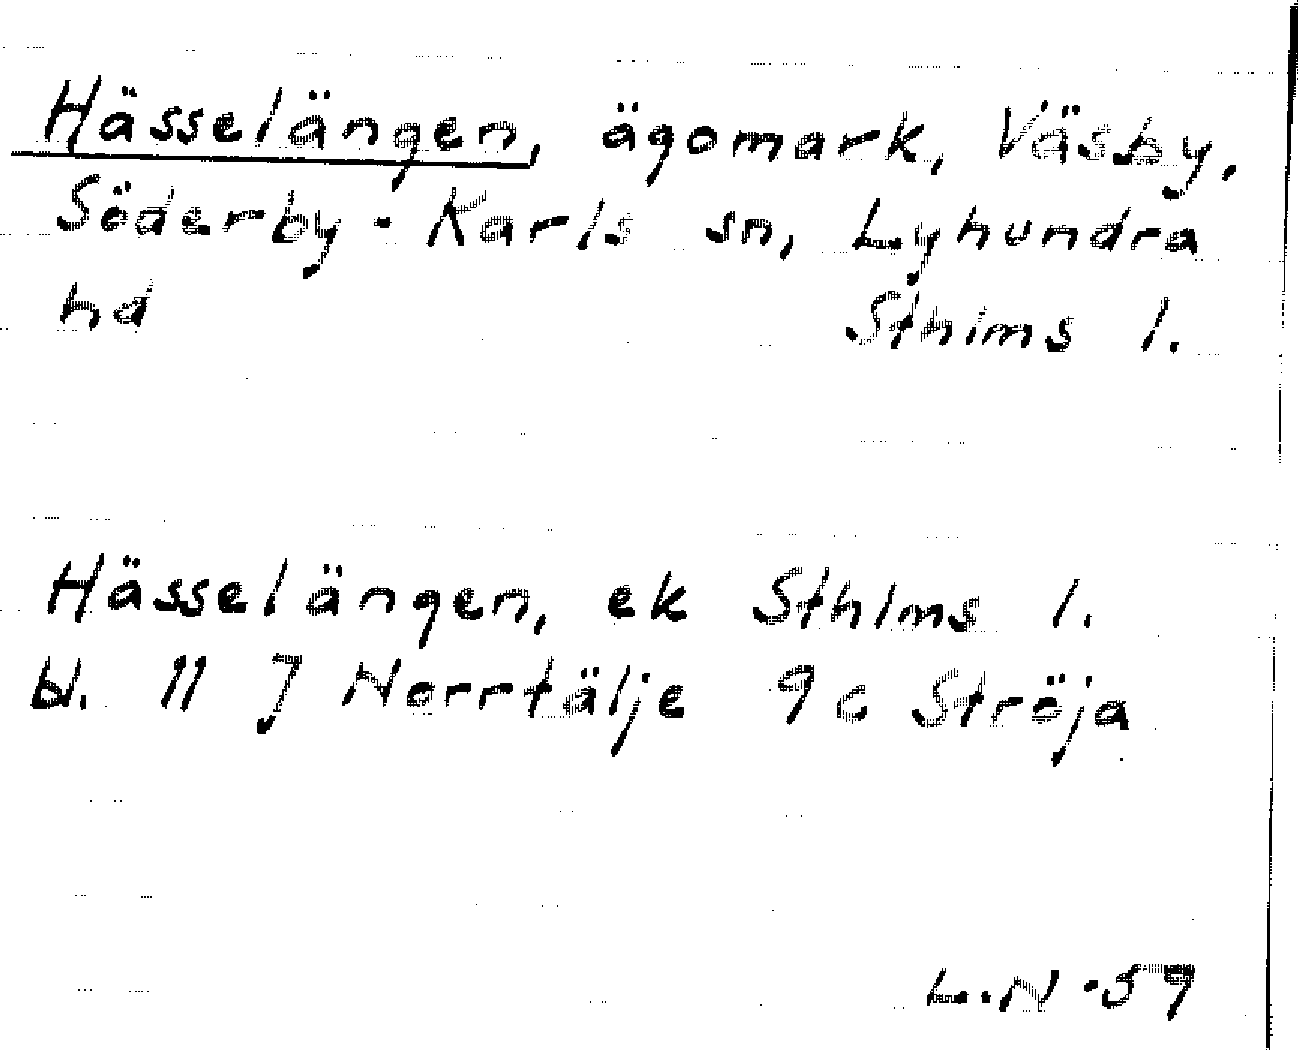 Hässelängen, ägomark, Väsby,
Söderby-Karls sn, Lyhundra
hd Sthlms l.
Hässelängen, ek Sthlms l.
bl. 11 J Norrtälje 9c Ströja
L.N -59